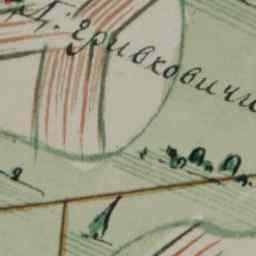 Д. Еривховичи